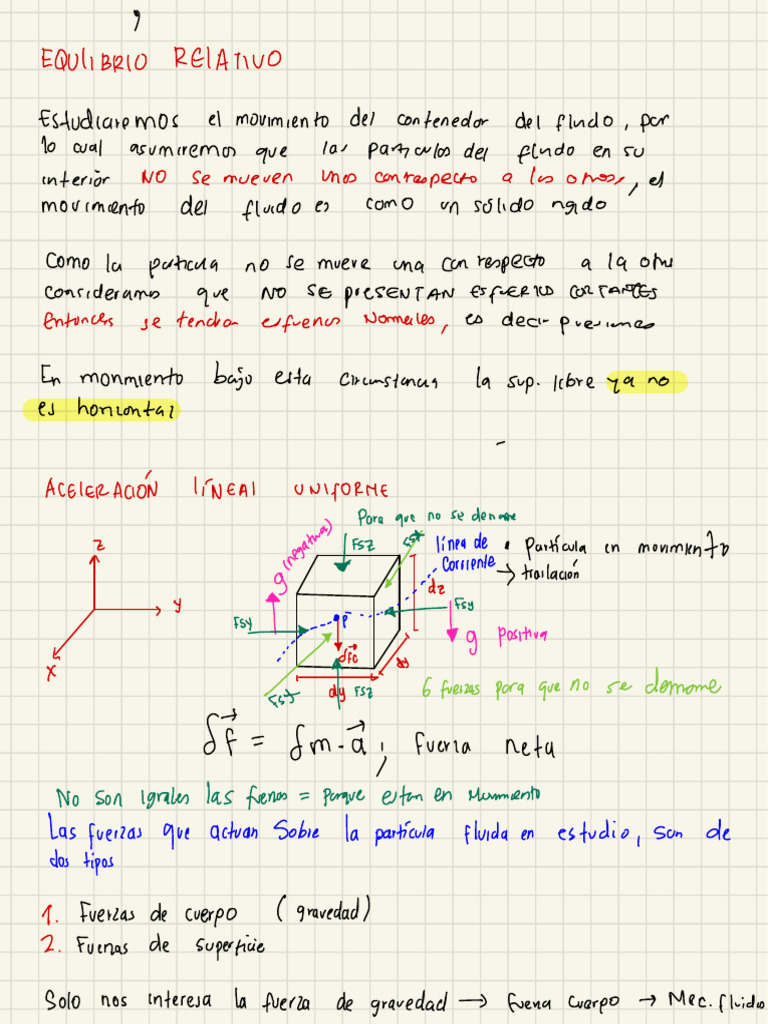 EQUILIBRIO RELATIVO
Estudiaremos el movimiento del contenedor del fluido, por
lo cual asumiremos que las partículas del fluido en su
interior NO se mueven unas con respecto a las otras, el
movimiento del fluido es como un sólido rígido
Como la partícula no se mueve una con respecto a la otra
consideramos que NO SE PRESENTAN ESFUERZOS CORTANTES
Entonces se tendran esfuerzos Normales, es decir presiones
En movimiento bajo esta circunstancia la sup. libre ya no
es horizontal
ACELERACIÓN LÍNEAL UNIFORME
Para que no se derrame
z
y
x
g (negativa)
Fsz
Fsx
línea de
Corriente
• Partícula en movimiento
→ traslación
dz
Fsy
Fsy
P
δfc
g Positiva
dy
Fsz
Fsx
6 fuerzas para que no se derrame
δf = δm · a ; fuerza neta
No son igrales las fuerzas = Porque estan en Movimiento
Las fuerzas que actuan Sobre la partícula fluida en estudio, son de
dos tipos
1. Fuerzas de cuerpo (gravedad)
2. Fuerzas de superficie
Solo nos interesa la fuerza de gravedad → fuerza cuerpo → Mec. fluidos